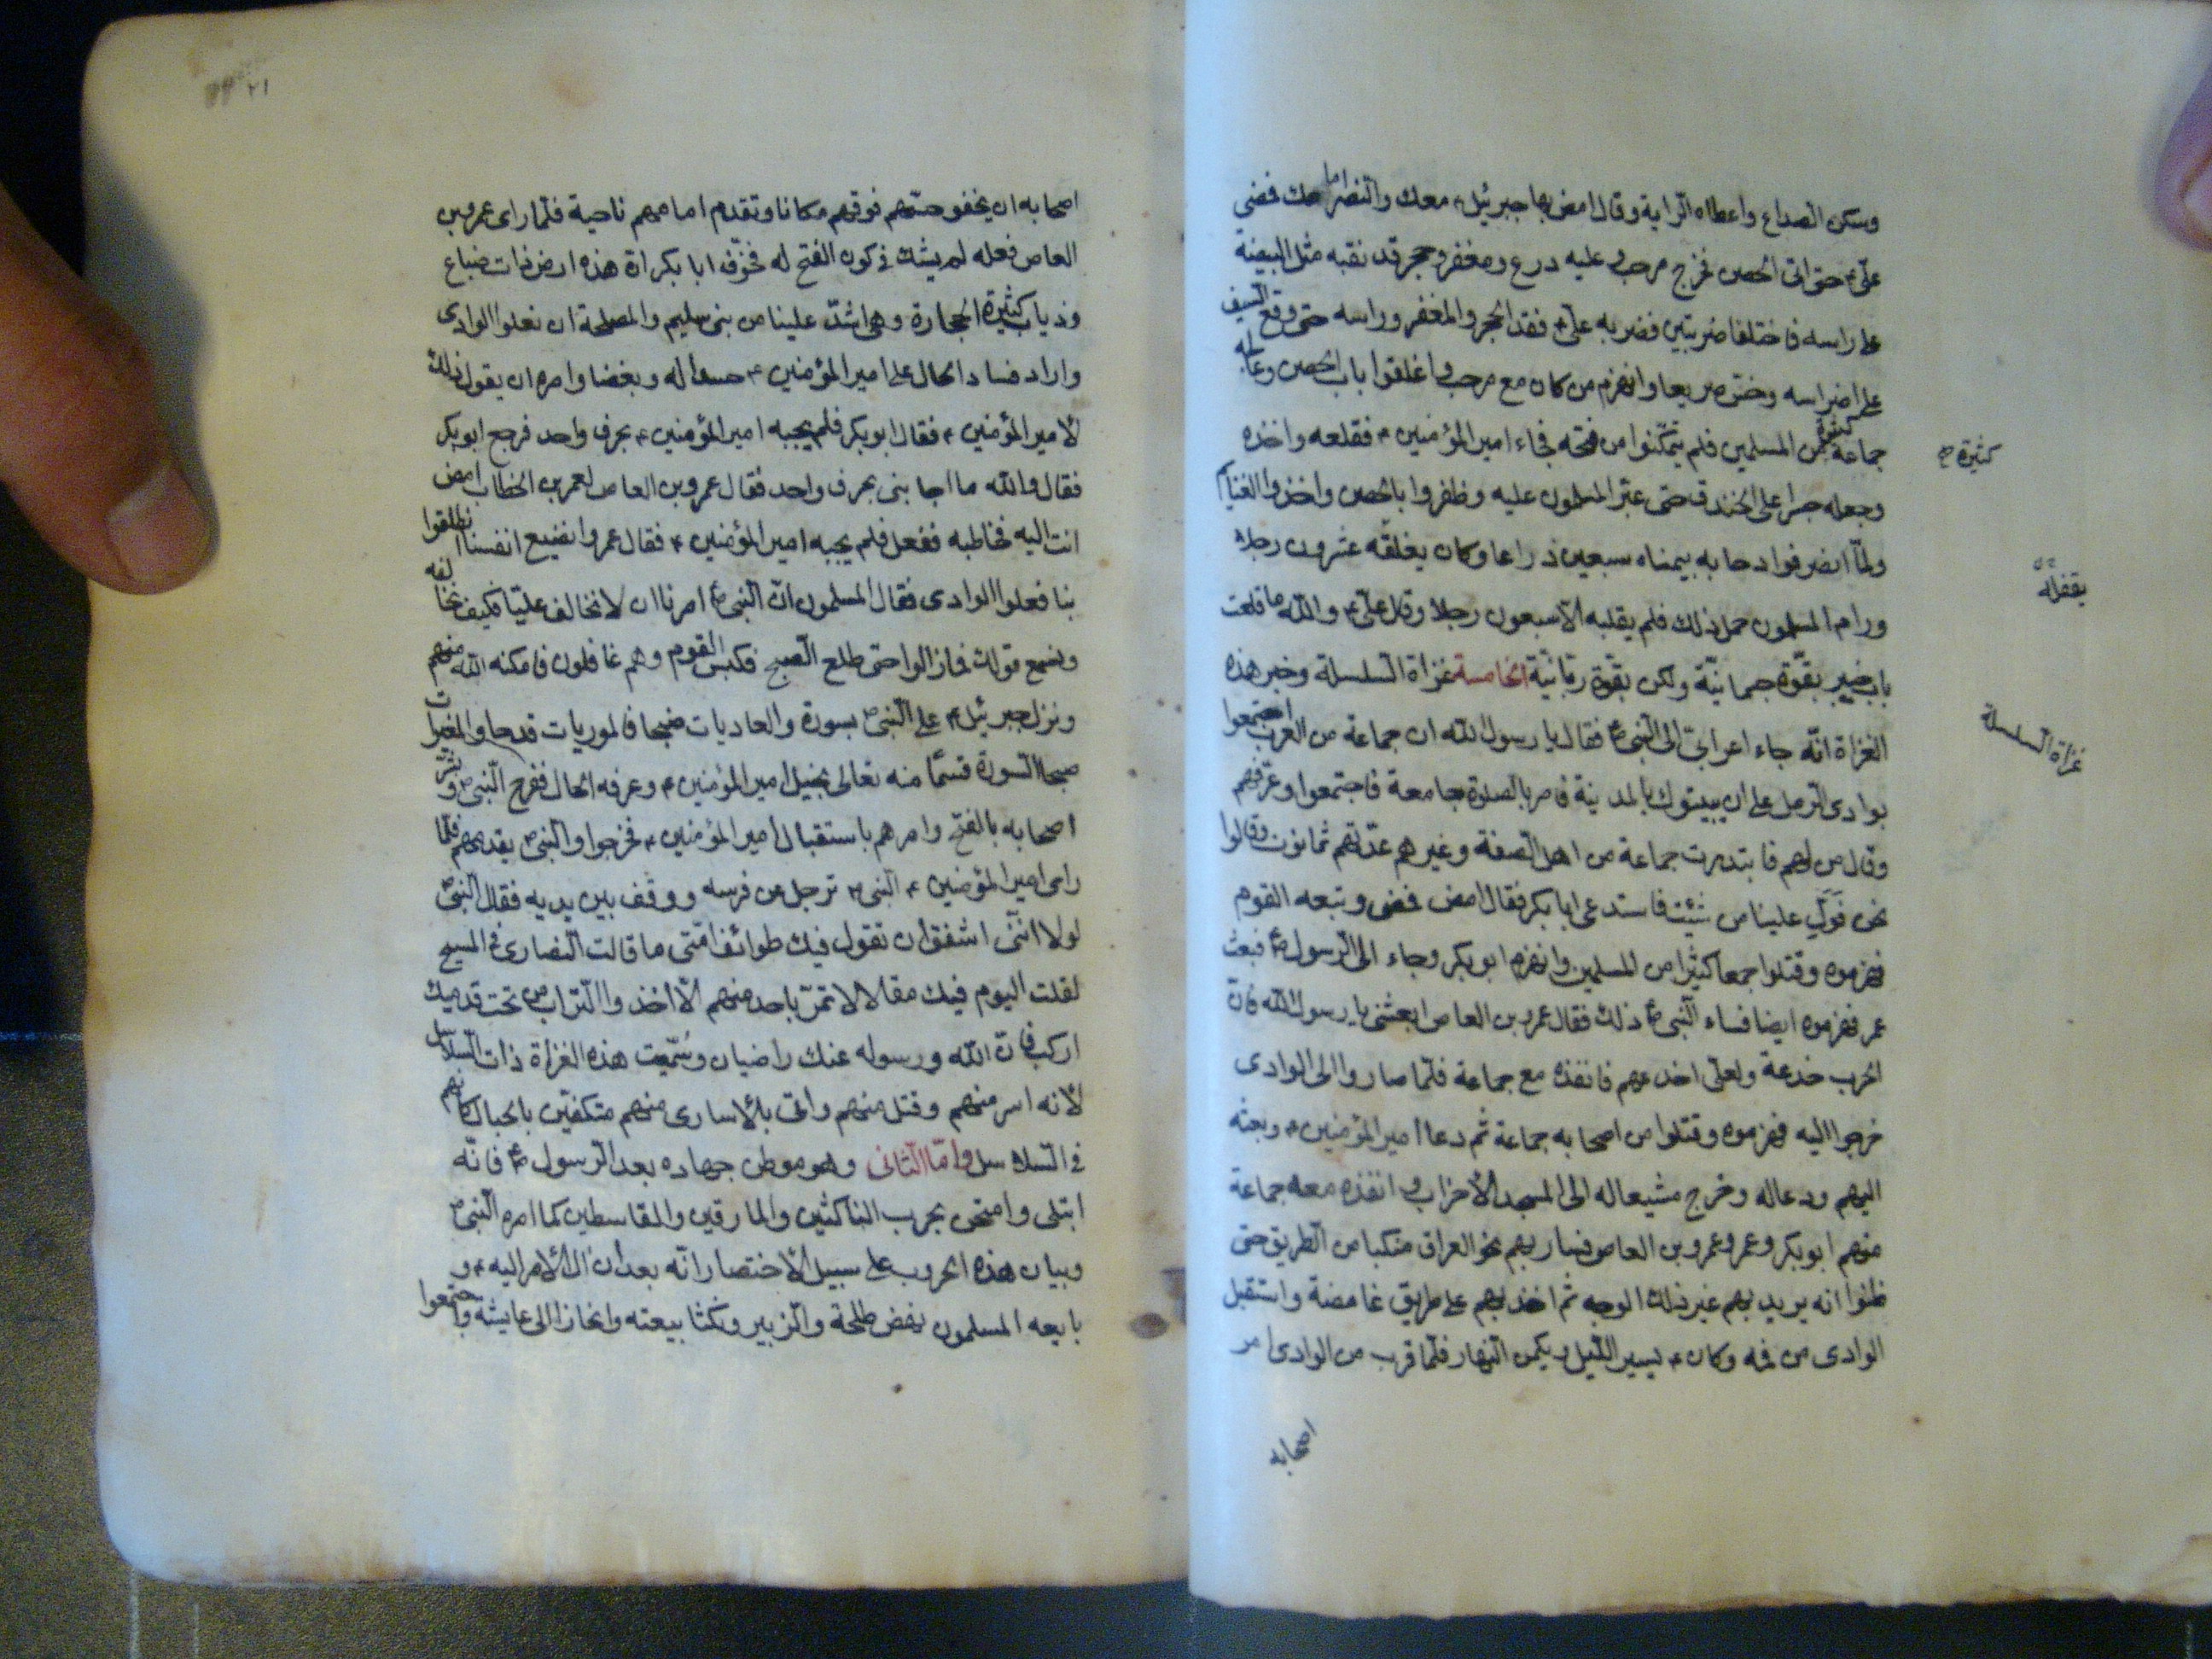 وسكن الصداع واعطاه الراية وقال امض بها جبرئيل ع معك والنصر امامك فمضى
علي ع حتى اتى الحصن فخرج مرحب وعليه درع ومغفر وحجر قد نقبه مثل البيضة
على راسه فاختلفا ضربتين فضربه علي ع فقد الحجر والمغفر وراسه حتى وقع السيف
على اضراسه وخر صريعا وانهزم من كان مع مرحب واغلقوا باب الحصن وعالجه
جماعة كثيرة من المسلمين فلم يتمكنوا من فتحه فجاء امير المؤمنين ع فقلعه واخذه
كثيرة صح
وجعله جسرا على الخندق حتى عبر المسلمون عليه وظفروا بالحصن واخذوا الغنايم
ولما انصرفوا دحا به بيمناه سبعين ذراعا وكان يغلقه عشرون رجلا
يقفله
ورام المسلمون حمل ذلك فلم يقلبه الا سبعون رجلا وقال علي ع والله ما قلعت
باب خيبر بقوة جسمانية ولكن بقوة ربانية الخامسة غزاة السلسلة وخبر هذه
غزاة السلسلة
الغزاة انه جاء اعرابي الى النبي ص فقال يا رسول الله ان جماعة من العرب اجتمعوا
بوادى الرمل على ان يبيتوك بالمدينة فامر بالصلوة جامعة فاجتمعوا وعرفهم
وقال من لهم فابتدرت جماعة من اهل الصفة وغيرهم عدتهم ثمانون وقالوا
نحن فول علينا من شئت فاستدعى ابا بكر فقال امض فمضى وتبعه القوم
فهزموه وقتلوا جمعا كثيرا من المسلمين وانهزم ابو بكر وجاء الى الرسول ص فبعث
عمر فهزموه ايضا فساء النبي ص ذلك فقال عمرو بن العاص ابعثنى يا رسول الله فان
الحرب خدعة ولعلى اخدعهم فانفذه مع جماعة فلما صاروا الى الوادى
خرجوا اليه فهزموه وقتلوا من اصحابه جماعة ثم دعا امير المؤمنين ع وبعثه
اليهم ودعا له وخرج مشيعا له الى المسجد الاحزاب وانفذه معه جماعة
منهم ابو بكر وعمر وعمرو بن العاص فسار بهم نحو العراق متنكبا من الطريق حتى
ظنوا انه يريد بهم غير ذلك الوجه ثم اخذ بهم على طريق غامضة واستقبل
الوادى من فمه وكان ع يسير الليل ويكمن النهار فلما قرب من الوادى امر
اصحابه
٢١
اصحابه ان يخفوا حسهم فوقهم مكانا وتقدم امامهم ناحية فلما راى عمرو بن
العاص فعله لم يشك في كون الفتح له فخوف ابا بكر ان هذه ارض ذات ضباع
وذياب كثيرة الحجارة وهى اشد علينا من بنى سليم والمصلحة ان نعلوا الوادى
واراد فساد الحال على امير المؤمنين ع حسدا له وبغضا وامره ان يقول ذلك
لامير المؤمنين ع فقال ابو بكر فلم يجبه امير المؤمنين ع بحرف واحد فرجع ابو بكر
فقال والله ما اجابنى بحرف واحد فقال عمرو بن العاص لعمر بن الخطاب امض
انت اليه فخاطبه ففعل فلم يجبه امير المؤمنين ع فقال عمرو انضيع انفسنا انطلقوا
بنا فعلوا الوادى فقال المسلمون ان النبي ص امرنا ان لا نخالف عليا فكيف نخالفه
ونسمع قولك فما زالوا حتى طلع الصبح فكبس القوم وهم غافلون فامكنه الله منهم
ونزل جبرئيل ع على النبي ص بسورة والعاديات ضبحا فالموريات قدحا والمغيرات
صبحا السورة قسما منه تعالى بخيل امير المؤمنين ع وعرفه الحال ففرح النبي ص وبشر
اصحابه بالفتح وامرهم باستقبال امير المؤمنين ع فخرجوا والنبي ص يقدمهم فلما
راى امير المؤمنين ع النبي ص ترجل عن فرسه ووقف بين يديه فقال النبي ص
لولا اننى اشفق ان تقول فيك طوائف امتى ما قالت النصارى في المسيح
لقلت اليوم فيك مقالا لا تمر باحد منهم الا اخذوا التراب من تحت قدميك
اركب فان الله ورسوله عنك راضيان وسميت هذه الغزاة ذات السلاسل
لانه اسر منهم وقتل منهم واتى بالاسارى منهم متكفين بالحبال كانهم
في السلاسل واما الثانى وهو موطن جهاده بعد الرسول ص فانه
ابتلى وامتحن بحرب الناكثين والمارقين والقاسطين كما امره النبي ص
وبيان هذه الحروب على سبيل الاختصار انه بعد ان ال الامر اليه ع و
بايعه المسلمون نهض طلحة والزبير ونكثا بيعته وانحازا الى عايشة واجتمعوا